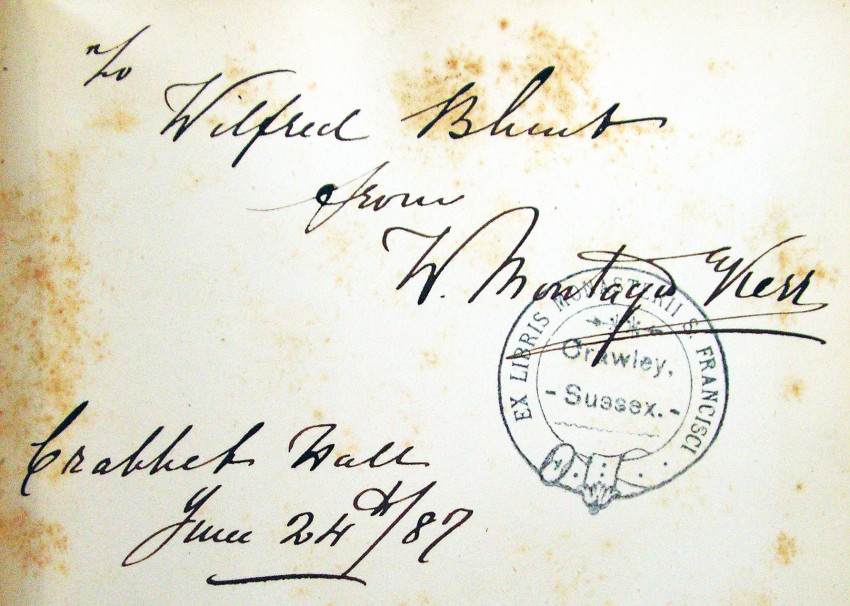 To
Wilfred Blunt
from
W. Montagu Kerr
EX LIBRIS MONASTERII S. FRANCISCI
Crawley,
- Sussex. -
Crabbet Hall
June 24th/87